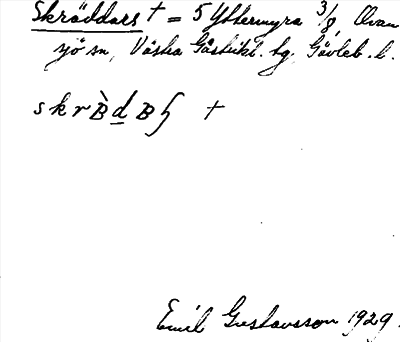 Skräddars † = 5 Yttermyra 3/8 Ovan
sjö sn, Västra Gästrikl. hg. Gävleb. l.
skrB̀d̲Bʃ †
Emil Gustavsson 1929.